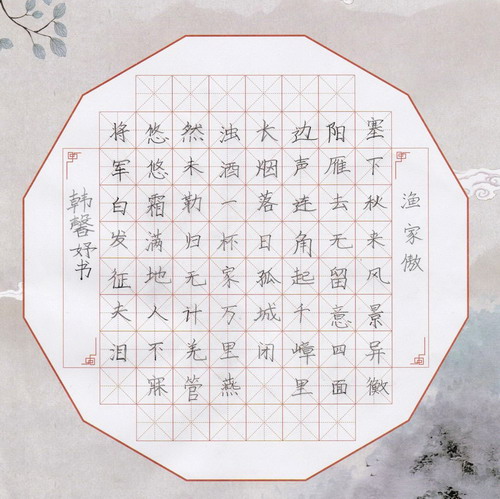 渔家傲
塞下秋来风景异衡
阳雁去无留意四面
边声连角起千嶂里
长烟落日孤城闭
浊酒一杯家万里燕
然未勒归无计羌管
悠悠霜满地人不寐
将军白发征夫泪
韩馨妤书